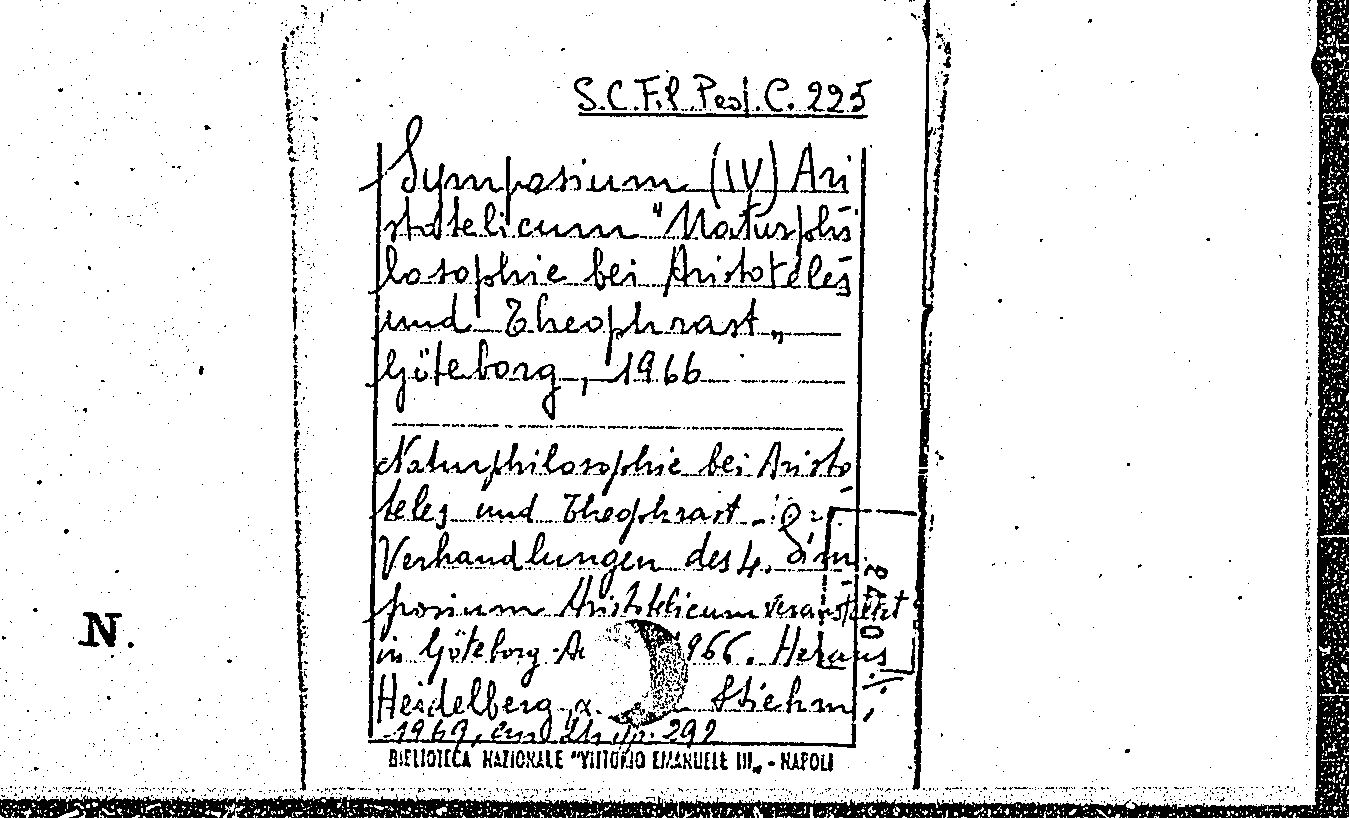 S.C.Fil Prof. C. 225
Symposium (IV) Ari
stotelicum "Naturphi
losophie bei Aristoteles
und Theophrast„
Göteborg, 1966
Naturphilosophie bei Aristo
teles und Theophrast
Verhandlungen des 4. Sym
posium Aristotelicum veranstaltet
in Göteborg 1966. Heraus
Heidelberg Stiehm,
1969, p. 292
N.
BIBLIOTECA NAZIONALE "VITTORIO EMANUELE III„ - NAPOLI